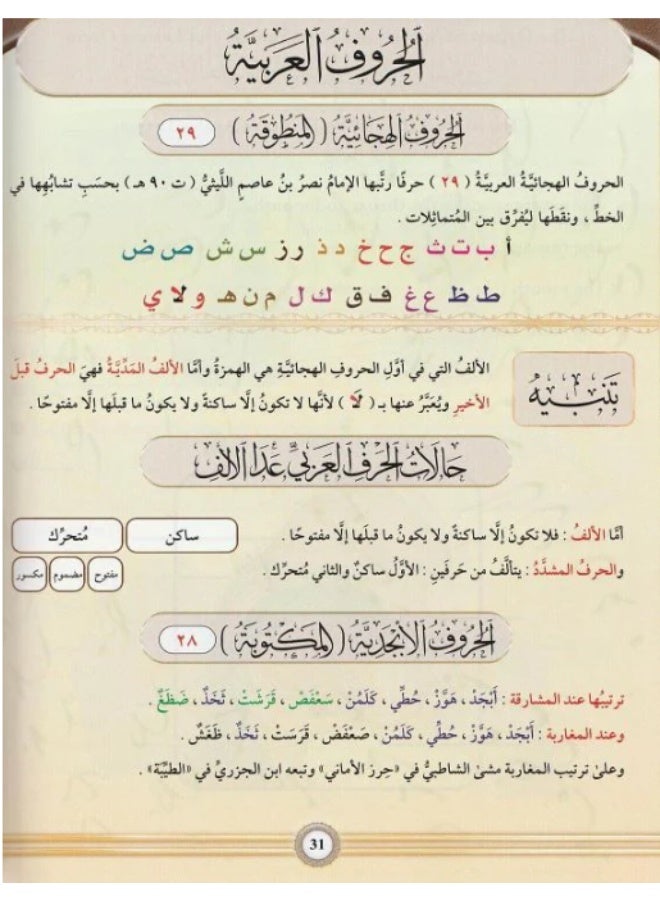 الحُرُوفُ العَرَبِيَّةُ
الحُرُوفُ الهِجَائِيَّةُ (المَنطُوقَة) ٢٩
الحروفُ الهجائيَّةُ العربيَّةُ ( ٢٩ ) حرفًا رتَّبها الإمامُ نصرُ بنُ عاصمٍ اللَّيثيُّ ( ت ٩٠ هـ ) بحسَبِ تشابُهِها في
الخطِّ ، ونقَطَها ليُفرَّق بين المُتماثِلات .
أ ب ت ث ج ح خ د ذ ر ز س ش ص ض
ط ظ ع غ ف ق ك ل م ن هـ و لا ي
تَنبِيه
الألفُ التي في أوَّلِ الحروفِ الهجائيَّةِ هي الهمزةُ وأمَّا الألفُ المَدِّيَّةُ فهيَ الحرفُ قبلَ
الأخيرِ ويُعَبَّرُ عنها بـ ( لَا ) لأنَّها لا تكونُ إلَّا ساكنةً ولا يكونُ ما قبلَها إلَّا مفتوحًا .
حَالَاتُ الحَرفِ العَرَبيِّ عَدَا الأَلِفِ
أمَّا الألفُ : فلا تكونُ إلَّا ساكنةً ولا يكونُ ما قبلَها إلَّا مفتوحًا .
ساكن
مُتحرِّك
والحرفُ المشدَّدُ : يتألَّفُ من حَرفَينِ : الأوَّلُ ساكنٌ والثاني مُتحرِّك .
مفتوح
مضموم
مكسور
الحُرُوفُ الأَبْجَدِيَّةُ (المَكتُوبَة) ٢٨
ترتيبُها عند المشارقة : أَبْجَدْ ، هَوَّزْ ، حُطِّي ، كَلَمُنْ ، سَعْفَصْ ، قَرَشَتْ ، ثَخَذٌ ، ضَظَغٌ .
وعند المغاربة : أَبْجَدْ ، هَوَّزْ ، حُطِّي ، كَلَمُنْ ، صَعْفَضْ ، قَرَسَتْ ، ثَخَذٌ ، ظَغَشٌ .
وعلىٰ ترتيب المغاربة مشىٰ الشاطبيُّ في «حِرز الأماني» وتبعه ابن الجزريِّ في «الطيِّبة» .
31